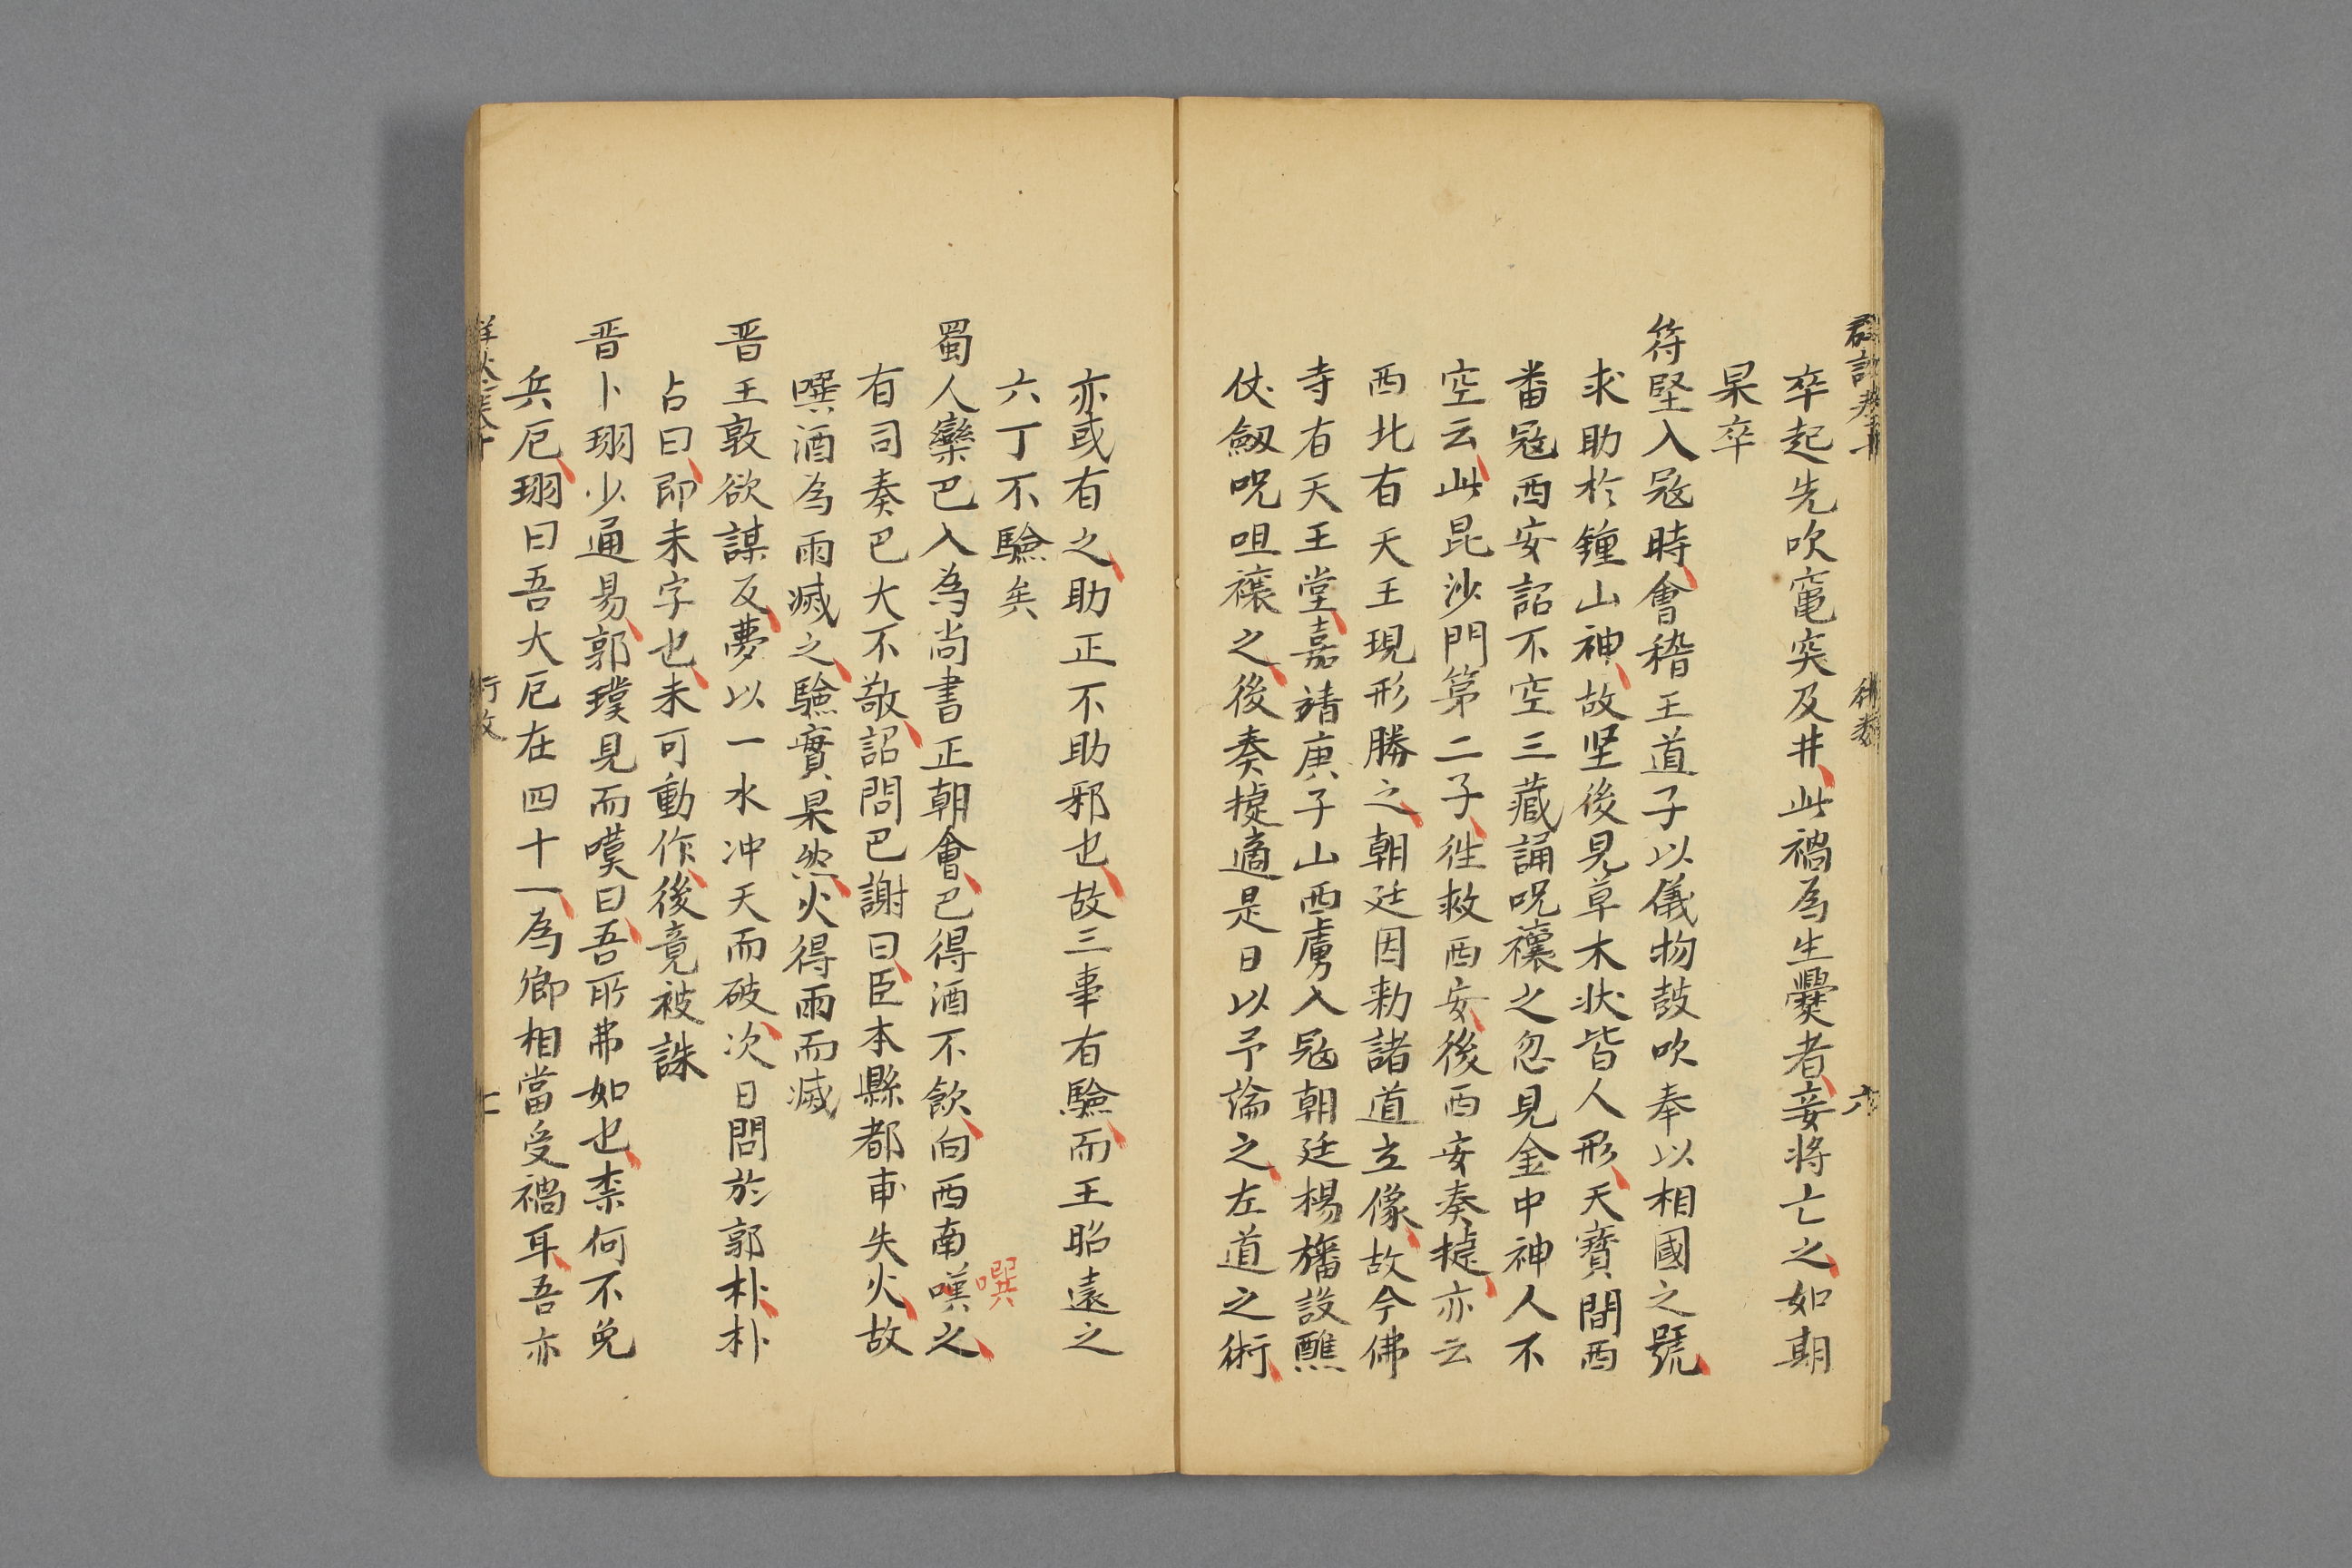 卒起先吹竃突及井此禍為生爨者妾將亡之如期
杲卒
符堅入冦時會稽王道子以儀物鼓吹奉以相國之號
求助於鍾山神故坚後見草木状皆人形天寳間西
畨冦西安詔不空三藏誦呪禳之忽見金中神人不
空云此昆沙門第二子徃救西安後西安奏㨗亦云
西北有天王現形勝之朝廷因勑諸道立像故今佛
寺有天王堂嘉靖庚子山西虜入冦朝廷楊旛設醮
仗劔呪咀禳之後奏㨗適是日以予論之左道之術
亦或有之助正不助邪也故三事有驗而王昭遠之
六丁不驗矣
蜀人欒巴入為尚書正朝會巴得酒不飲向西南嘆之
噀
有司奏巴大不敬詔問巴謝曰臣本縣都市失火故
噀酒為雨滅之驗實杲然火得雨而滅
晋王敦欲謀反夢以一水冲天而破次日問於郭朴朴
占曰即未字也未可動作後竟被誅
晋卜珝少通易郭璞見而嘆曰吾所弗如也柰何不免
兵厄珝曰吾大厄在四十一為卿相當受禍耳吾亦